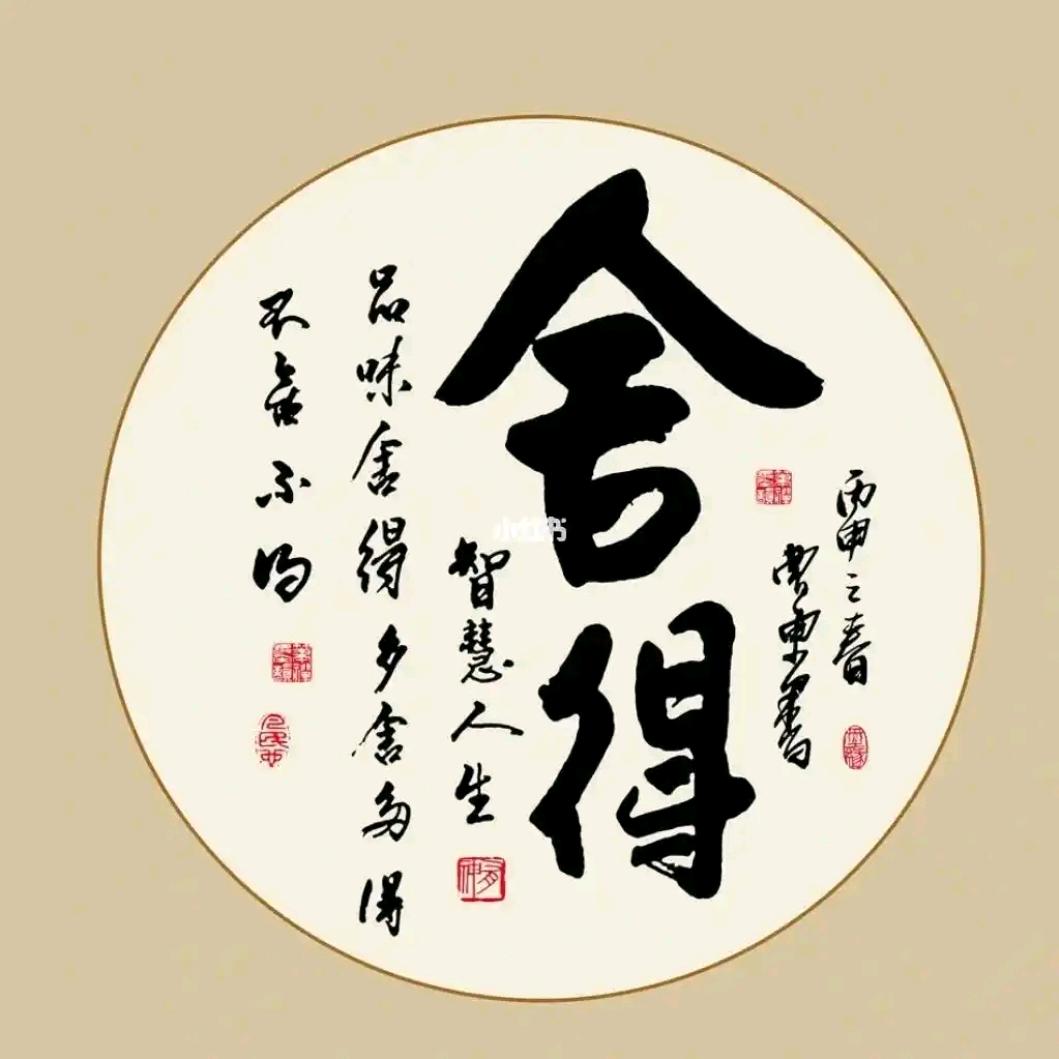 丙申之春
曹東書
舍得
智慧人生
品味舍得多舍多得
不舍不得
小红书